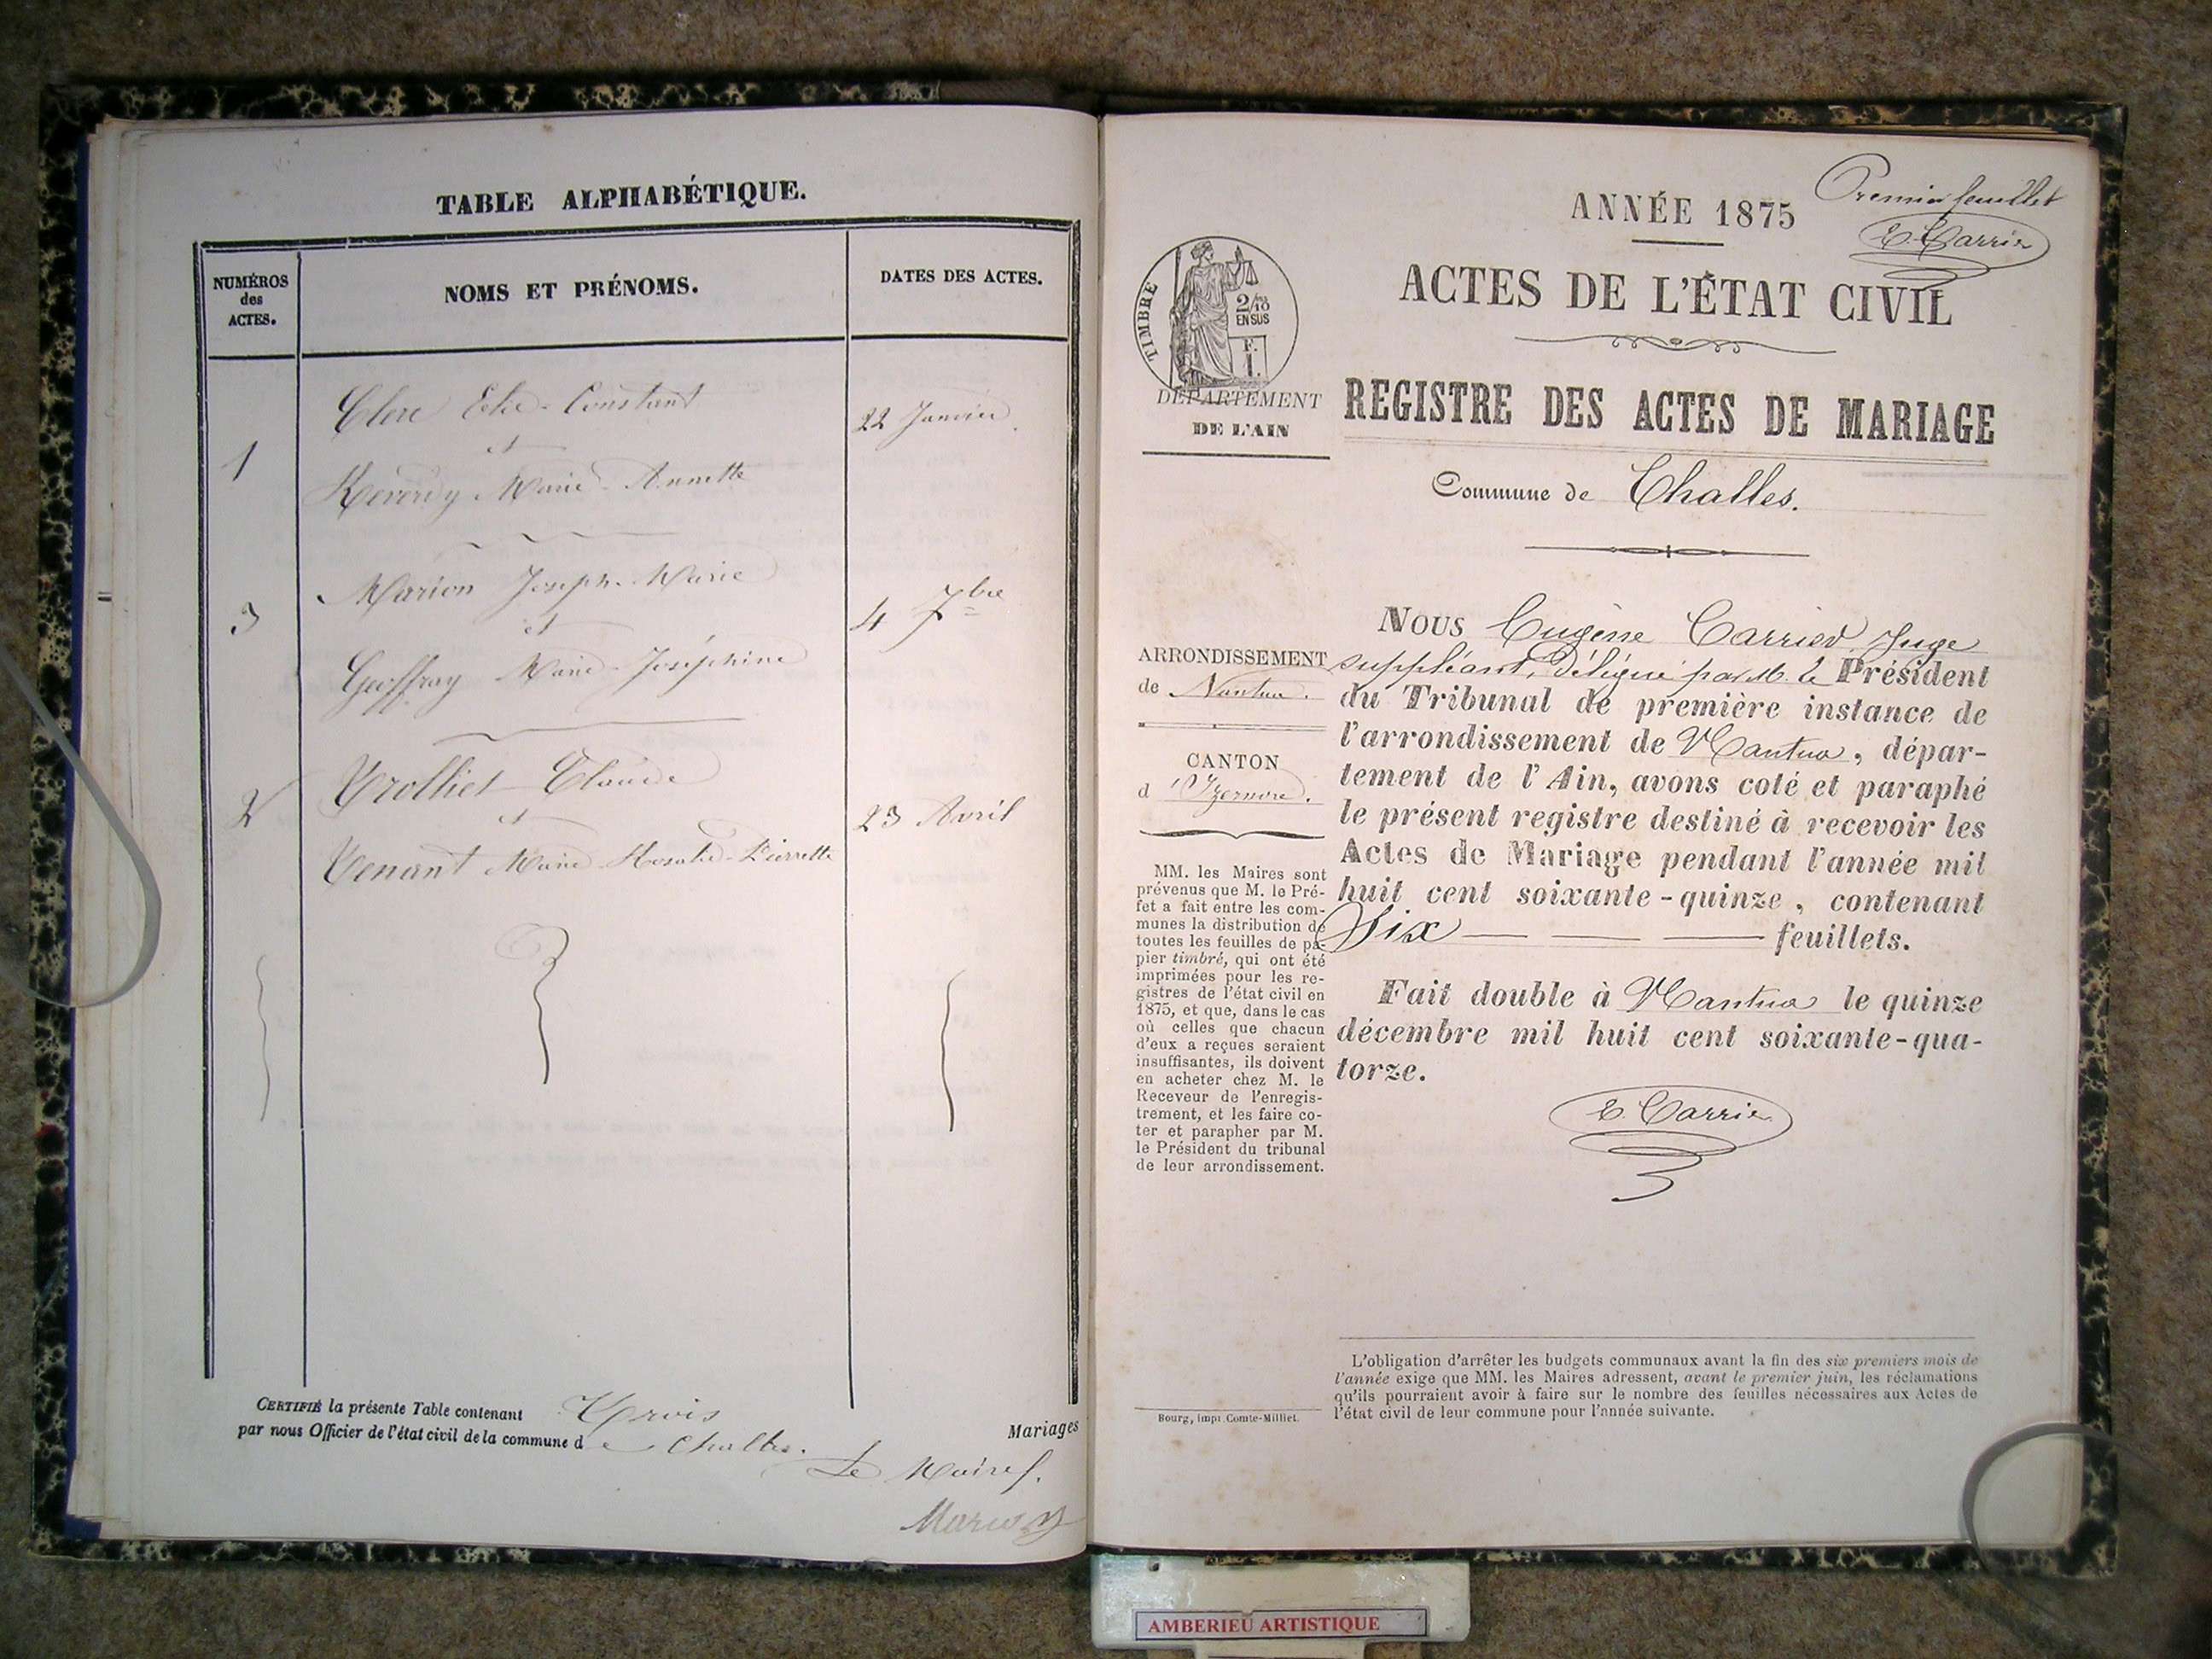 TABLE ALPHABÉTIQUE.
NUMÉROS
des
ACTES.
NOMS ET PRÉNOMS.
DATES DES ACTES.
Clerc Elie-Constant
22 Janvier
1
et
Reverdy Marie-Annette
Marion Joseph-Marie
3
et
4 7bre
Geoffray Marie-Joséphine
Trolliet Claude
2
et
23 Avril
Venant Marie-Rosalie-Pierrette
CERTIFIÉ la présente Table contenant Trois Mariages
par nous Officier de l'état civil de la commune de Challes.
Le Maire
Premier feuillet
ANNÉE 1875
E. Carrier
ACTES DE L'ÉTAT CIVIL
TIMBRE
2/10
EN SUS
F.
1.
DÉPARTEMENT
DE L'AIN
REGISTRE DES ACTES DE MARIAGE
Commune de Challes.
ARRONDISSEMENT
de Nantua.
CANTON
d'Izernore.
MM. les Maires sont
prévenus que M. le Pré-
fet a fait entre les com-
munes la distribution de
toutes les feuilles de pa-
pier timbré, qui ont été
imprimées pour les re-
gistres de l'état civil en
1875, et que, dans le cas
où celles que chacun
d'eux a reçues seraient
insuffisantes, ils doivent
en acheter chez M. le
Receveur de l'enregis-
trement, et les faire co-
ter et parapher par M.
le Président du tribunal
de leur arrondissement.
Nous Eugène Carrier, Juge
suppléant, délégué par M. le Président
du Tribunal de première instance de
l'arrondissement de Nantua, dépar-
tement de l'Ain, avons coté et paraphé
le présent registre destiné à recevoir les
Actes de Mariage pendant l'année mil
huit cent soixante-quinze, contenant
Six feuillets.
Fait double à Nantua le quinze
décembre mil huit cent soixante-qua-
torze.
E. Carrier
L'obligation d'arrêter les budgets communaux avant la fin des six premiers mois de
l'année exige que MM. les Maires adressent, avant le premier juin, les réclamations
qu'ils pourraient avoir à faire sur le nombre des feuilles nécessaires aux Actes de
l'état civil de leur commune pour l'année suivante.
Bourg, impr. Comte-Milliet.
AMBERIEU ARTISTIQUE